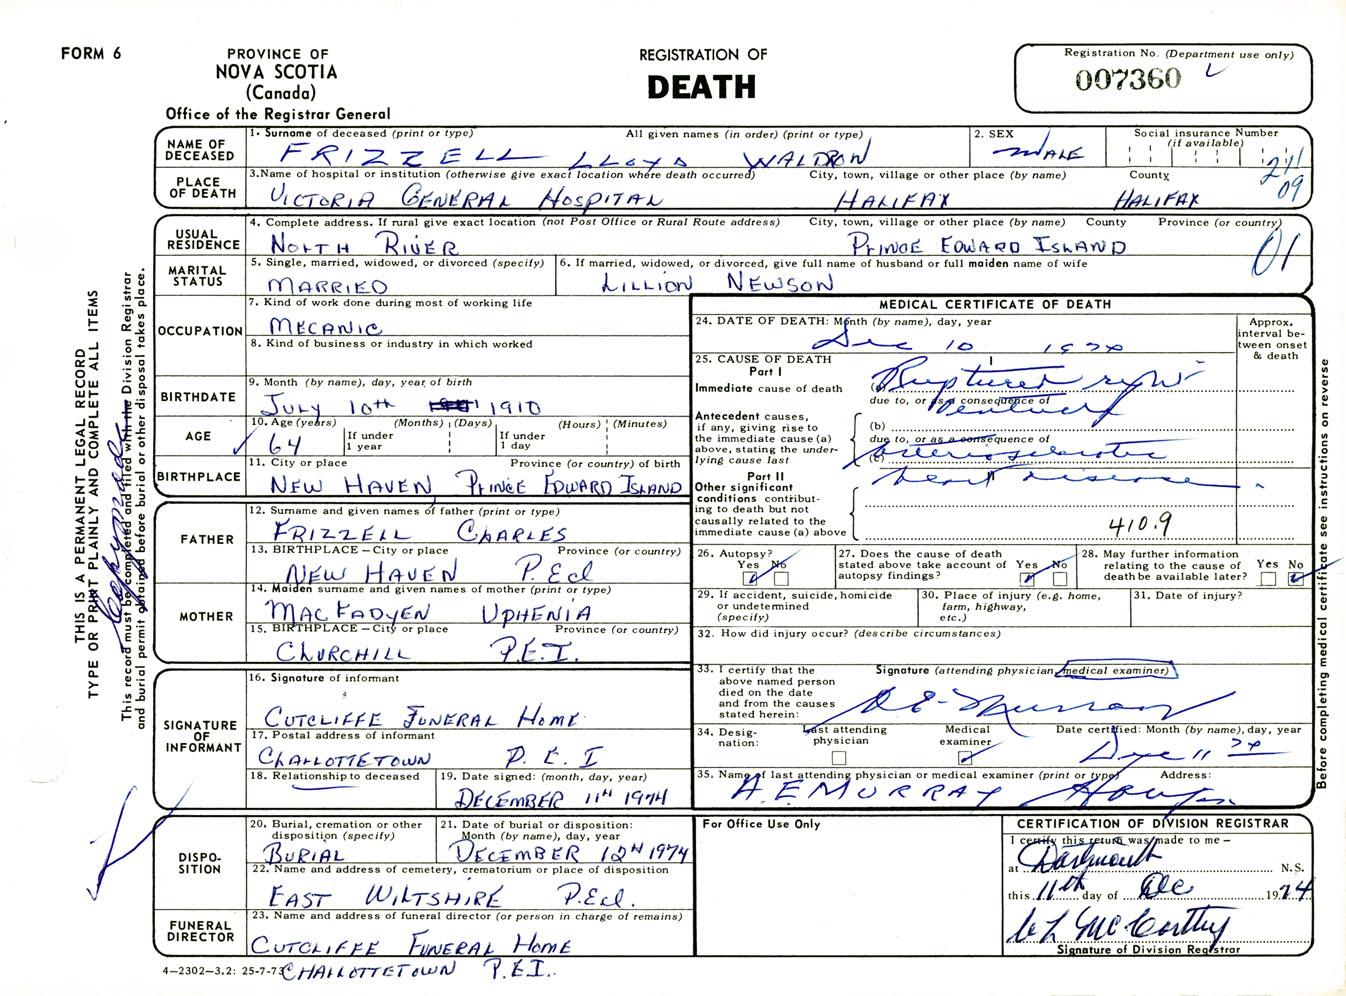 FORM 6
PROVINCE OF
NOVA SCOTIA
(Canada)
Office of the Registrar General
REGISTRATION OF
DEATH
Registration No. (Department use only)
007360
NAME OF DECEASED
1. Surname of deceased (print or type) All given names (in order) (print or type)
FRIZZELL LLOYD WALDRON
2. SEX
MALE
Social insurance Number
(if available)
PLACE OF DEATH
3. Name of hospital or institution (otherwise give exact location where death occurred) City, town, village or other place (by name) County
VICTORIA GENERAL HOSPITAL HALIFAX HALIFAX
09
USUAL RESIDENCE
4. Complete address. If rural give exact location (not Post Office or Rural Route address) City, town, village or other place (by name) County Province (or country)
NORTH RIVER PRINCE EDWARD ISLAND
01
MARITAL STATUS
5. Single, married, widowed, or divorced (specify)
MARRIED
6. If married, widowed, or divorced, give full name of husband or full maiden name of wife
LILLION NEWSON
OCCUPATION
7. Kind of work done during most of working life
MECANIC
8. Kind of business or industry in which worked
BIRTHDATE
9. Month (by name), day, year, of birth
JULY 10th 1910
AGE
10. Age (years) (Months) (Days) (Hours) (Minutes)
64
If under 1 year
If under 1 day
BIRTHPLACE
11. City or place Province (or country) of birth
NEW HAVEN, PRINCE EDWARD ISLAND
FATHER
12. Surname and given names of father (print or type)
FRIZZELL CHARLES
13. BIRTHPLACE – City or place Province (or country)
NEW HAVEN P.Ed
MOTHER
14. Maiden surname and given names of mother (print or type)
MACFADYEN UPHENIA
15. BIRTHPLACE – City or place Province (or country)
CHURCHILL P.E.I.
SIGNATURE OF INFORMANT
16. Signature of informant
CUTCLIFFE FUNERAL HOME
17. Postal address of informant
CHARLOTTETOWN P. E. I
18. Relationship to deceased
19. Date signed: (month, day, year)
DECEMBER 11TH 1974
DISPO-
SITION
20. Burial, cremation or other
disposition (specify)
BURIAL
21. Date of burial or disposition:
Month (by name), day, year
DECEMBER 12TH 1974
22. Name and address of cemetery, crematorium or place of disposition
EAST WILTSHIRE P.Ed.
FUNERAL DIRECTOR
23. Name and address of funeral director (or person in charge of remains)
CUTCLIFFE FUNERAL HOME
CHARLOTTETOWN P.E.I.
4–2302–3.2: 25-7-73
MEDICAL CERTIFICATE OF DEATH
24. DATE OF DEATH: Month (by name), day, year
Dec 10 1974
Approx. interval be-
tween onset
& death
25. CAUSE OF DEATH
Part I
Immediate cause of death
(a) Ruptured right
due to, or as a consequence of
ventricle
Antecedent causes,
if any, giving rise to
the immediate cause (a)
above, stating the under-
lying cause last
(b)
due to, or as a consequence of
(c) arteriosclerotic
heart disease
Part II
Other significant
conditions contribut-
ing to death but not
causally related to the
immediate cause (a) above
410.9
26. Autopsy?
Yes No
27. Does the cause of death
stated above take account of
autopsy findings?
Yes No
28. May further information
relating to the cause of
death be available later?
Yes No
29. If accident, suicide, homicide
or undetermined
(specify)
30. Place of injury (e.g. home,
farm, highway,
etc.)
31. Date of injury?
32. How did injury occur? (describe circumstances)
33. I certify that the
above named person
died on the date
and from the causes
stated herein:
Signature (attending physician, medical examiner)
A E Murray
34. Desig-
nation:
Last attending
physician
Medical
examiner
Date certified: Month (by name), day, year
Dec 11 74
35. Name of last attending physician or medical examiner (print or type) Address:
A.E. MURRAY
For Office Use Only
CERTIFICATION OF DIVISION REGISTRAR
I certify this return was made to me –
at Dartmouth N.S.
this 11th day of Dec 1974
McCarthy
Signature of Division Registrar
THIS IS A PERMANENT LEGAL RECORD
TYPE OR PRINT PLAINLY AND COMPLETE ALL ITEMS
This record must be completed and filed with the Division Registrar
and burial permit obtained before burial or other disposal takes place.
Before completing medical certificate see instructions on reverse